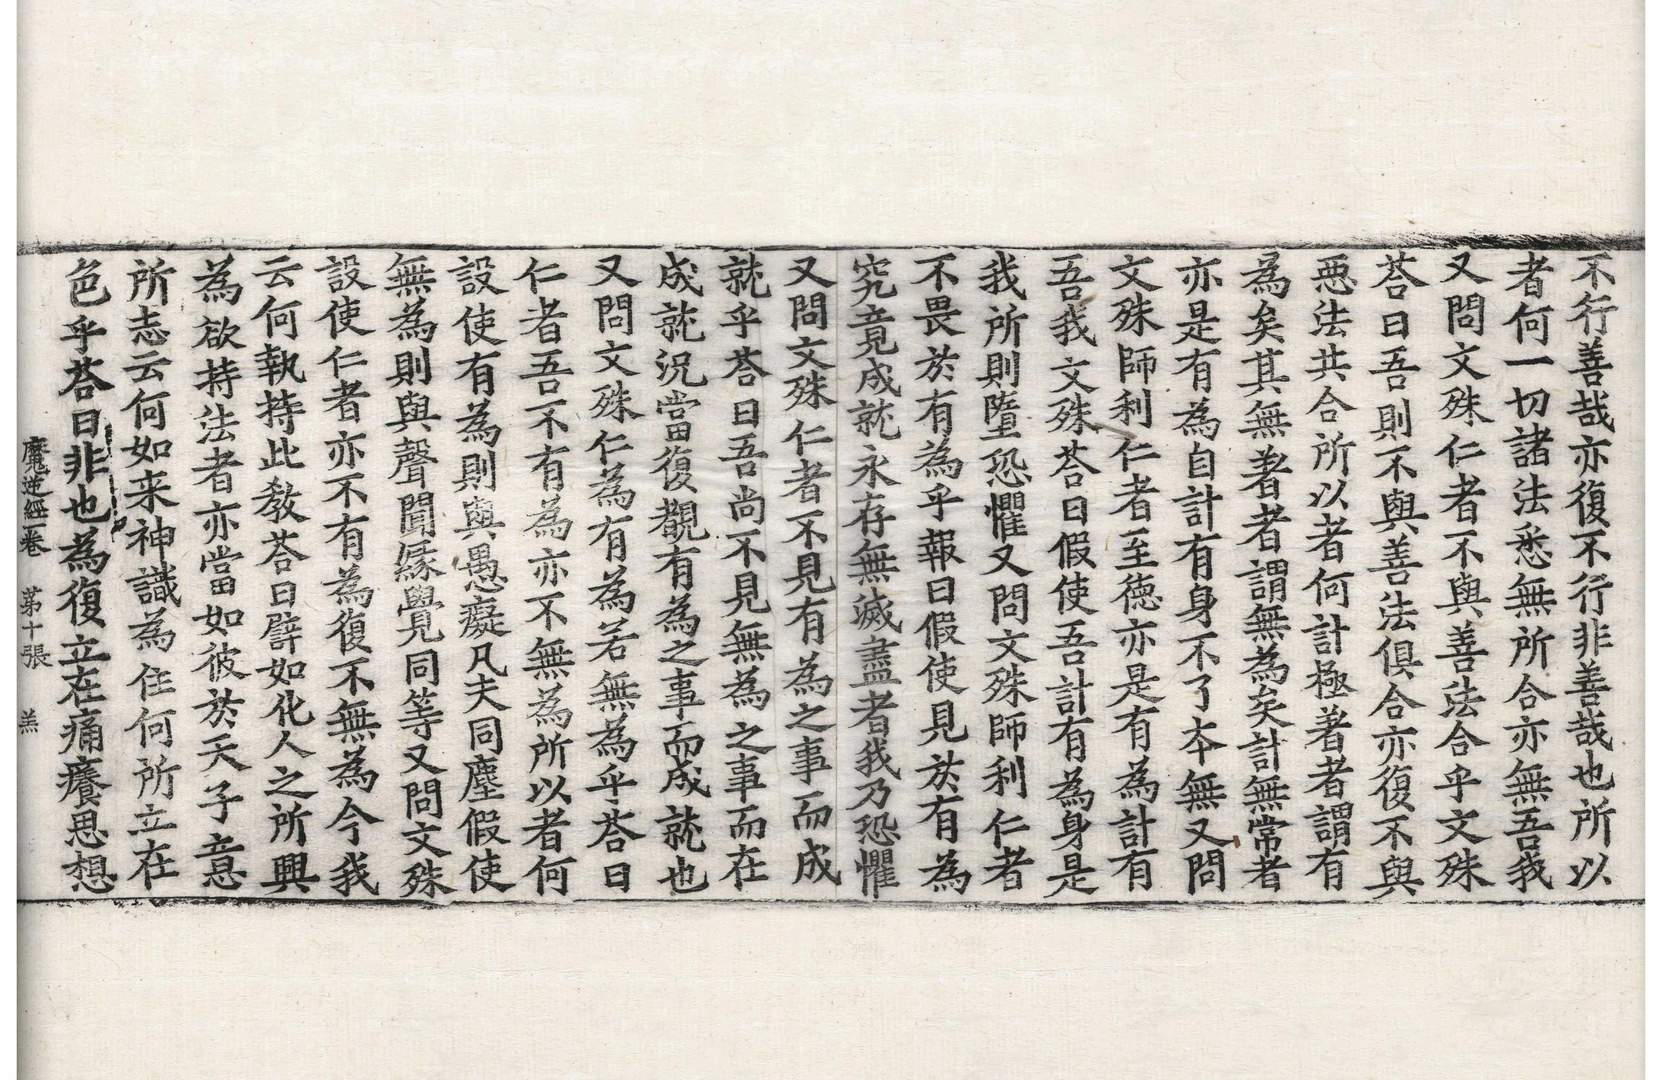 不行善哉亦復不行非善哉也所以
者何一切諸法悉無所合亦無吾我
又問文殊仁者不與善法合乎文殊
荅曰吾則不與善法俱合亦復不與
惡法共合所以者何計極著者謂有
為矣其無著者謂無為矣計無常者
亦是有為自計有身不了夲無又問
文殊師利仁者至德亦是有為計有
吾我文殊荅曰假使吾計有為身是
我所則墮恐懼又問文殊師利仁者
不畏於有為乎報曰假使見於有為
究竟成就永存無滅盡者我乃恐懼
又問文殊仁者不見有為之事而成
就乎荅曰吾尚不見無為之事而在
成就況當復覩有為之事而成就也
又問文殊仁為有為若無為乎荅曰
仁者吾不有為亦不無為所以者何
設使有為則與愚癡凡夫同塵假使
無為則與聲聞緣覺同等又問文殊
設使仁者亦不有為復不無為今我
云何執持此教荅曰譬如化人之所興
為欲持法者亦當如彼於天子意
所志云何如来神識為住何所立在
色乎荅曰非也為復立在痛癢思想
魔逆經一卷　苐十張　羔